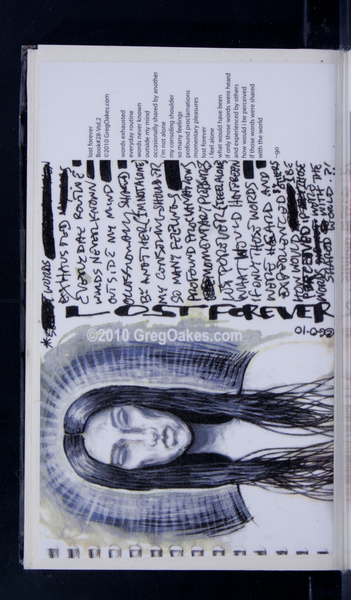 lost forever
Book#28-Vol.2
©2010 GregOakes.com
words exhausted
everyday routine
words never known
outside my mind
occasionally shared by another
I'm not alone
my consoling shoulder
so many feelings
profound proclamations
momentary pleasures
lost forever
I feel alone
what would have been
if only those words were heard
and experienced by others
how would I be perceived
if those words were shared
with the world
-go
* WORDS
EXHAUSTED
EVERYDAY ROUTINE
WORDS NEVER KNOWN
OUTSIDE MY MIND
OCCASIONALLY SHARED
BY ANOTHER I'M NOT ALONE
MY CONSOLING SHOULDER
SO MANY FEELINGS
PROFOUND PROCLAMATIONS
MOMENTARY PLEASURES
LOST FOREVER I FEEL ALONE
WHAT WOULD HAPPEN
IF ONLY THOSE WORDS
WERE HEARD AND
EXPERIENCED BY OTHERS
HOW WOULD I BE
PERCEIVED IF THOSE
WORDS WERE
SHARED WITH THE WORLD.?!
LOST FOREVER
©2010 GregOakes.com